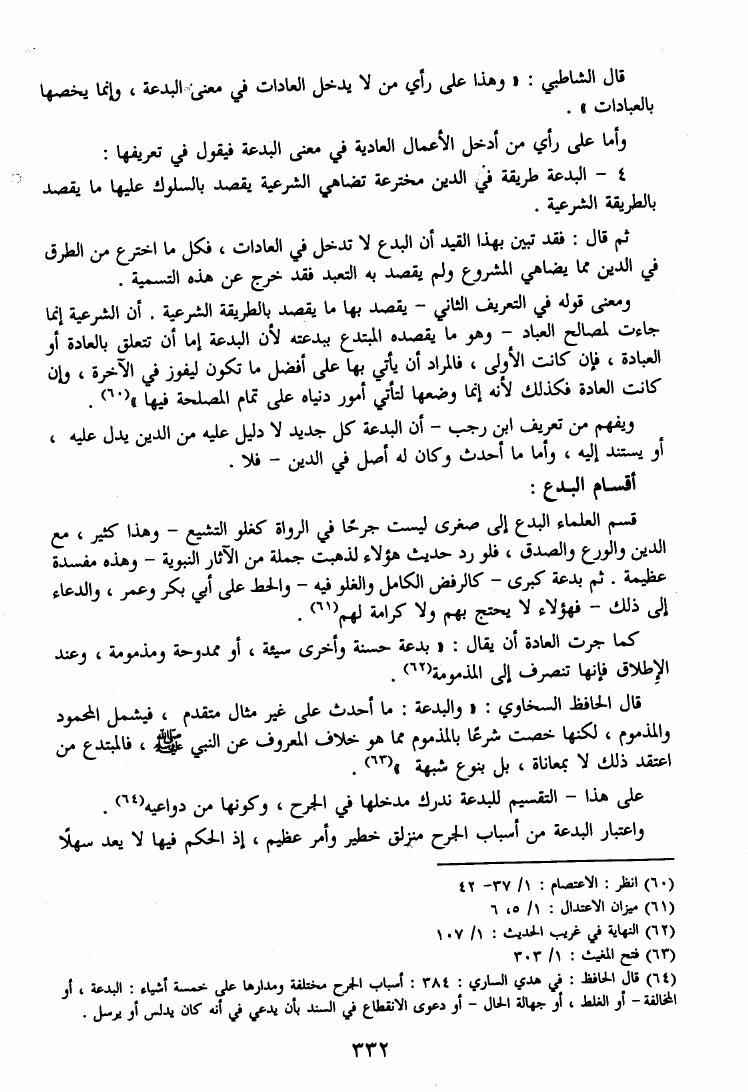 قال الشاطبي : « وهذا على رأي من لا يدخل العادات في معنى البدعة ، وإنما يخصها
بالعبادات » .
وأما على رأي من أدخل الأعمال العادية في معنى البدعة فيقول في تعريفها :
٤ – البدعة طريقة في الدين مخترعة تضاهي الشرعية يقصد بالسلوك عليها ما يقصد
بالطريقة الشرعية .
ثم قال : فقد تبين بهذا القيد أن البدع لا تدخل في العادات ، فكل ما اخترع من الطرق
في الدين مما يضاهي المشروع ولم يقصد به التعبد فقد خرج عن هذه التسمية .
ومعنى قوله في التعريف الثاني – يقصد بها ما يقصد بالطريقة الشرعية . أن الشرعية إنما
جاءت لمصالح العباد – وهو ما يقصده المبتدع ببدعته لأن البدعة إما أن تتعلق بالعادة أو
العبادة ، فإن كانت الأولى ، فالمراد أن يأتي بها على أفضل ما تكون ليفوز في الآخرة ، وإن
كانت العادة فكذلك لأنه إنما وضعها لتأتي أمور دنياه على تمام المصلحة فيها »(٦٠) .
ويفهم من تعريف ابن رجب – أن البدعة كل جديد لا دليل عليه من الدين يدل عليه ،
أو يستند إليه ، وأما ما أحدث وكان له أصل في الدين – فلا .
أقسام البدع :
قسم العلماء البدع إلى صغرى ليست جرحًا في الرواة كغلو التشيع – وهذا كثير ، مع
الدين والورع والصدق ، فلو رد حديث هؤلاء لذهبت جملة من الآثار النبوية – وهذه مفسدة
عظيمة . ثم بدعة كبرى – كالرفض الكامل والغلو فيه – والحط على أبي بكر وعمر ، والدعاء
إلى ذلك – فهؤلاء لا يحتج بهم ولا كرامة لهم(٦١) .
كما جرت العادة أن يقال : « بدعة حسنة وأخرى سيئة ، أو ممدوحة ومذمومة ، وعند
الإطلاق فإنها تنصرف إلى المذمومة(٦٢) .
قال الحافظ السخاوي : « والبدعة : ما أحدث على غير مثال متقدم ، فيشمل المحمود
والمذموم ، لكنها خصت شرعًا بالمذموم مما هو خلاف المعروف عن النبي ﷺ ، فالمبتدع من
اعتقد ذلك لا بمعاناة ، بل بنوع شبهة »(٦٣) .
على هذا – التقسيم للبدعة ندرك مدخلها في الجرح ، وكونها من دواعيه(٦٤) .
واعتبار البدعة من أسباب الجرح منزلق خطير وأمر عظيم ، إذ الحكم فيها لا يعد سهلًا
(٦٠) انظر : الاعتصام : ١/ ٣٧– ٤٢
(٦١) ميزان الاعتدال : ١/ ٥، ٦
(٦٢) النهاية في غريب الحديث : ١/ ١٠٧
(٦٣) فتح المغيث : ١/ ٣٠٣
(٦٤) قال الحافظ : في هدي الساري : ٣٨٤ : أسباب الجرح مختلفة ومدارها على خمسة أشياء : البدعة ، أو
المخالفة – أو الغلط ، أو جهالة الحال – أو دعوى الانقطاع في السند بأن يدعي في أنه كان يدلس أو يرسل .
٣٣٢